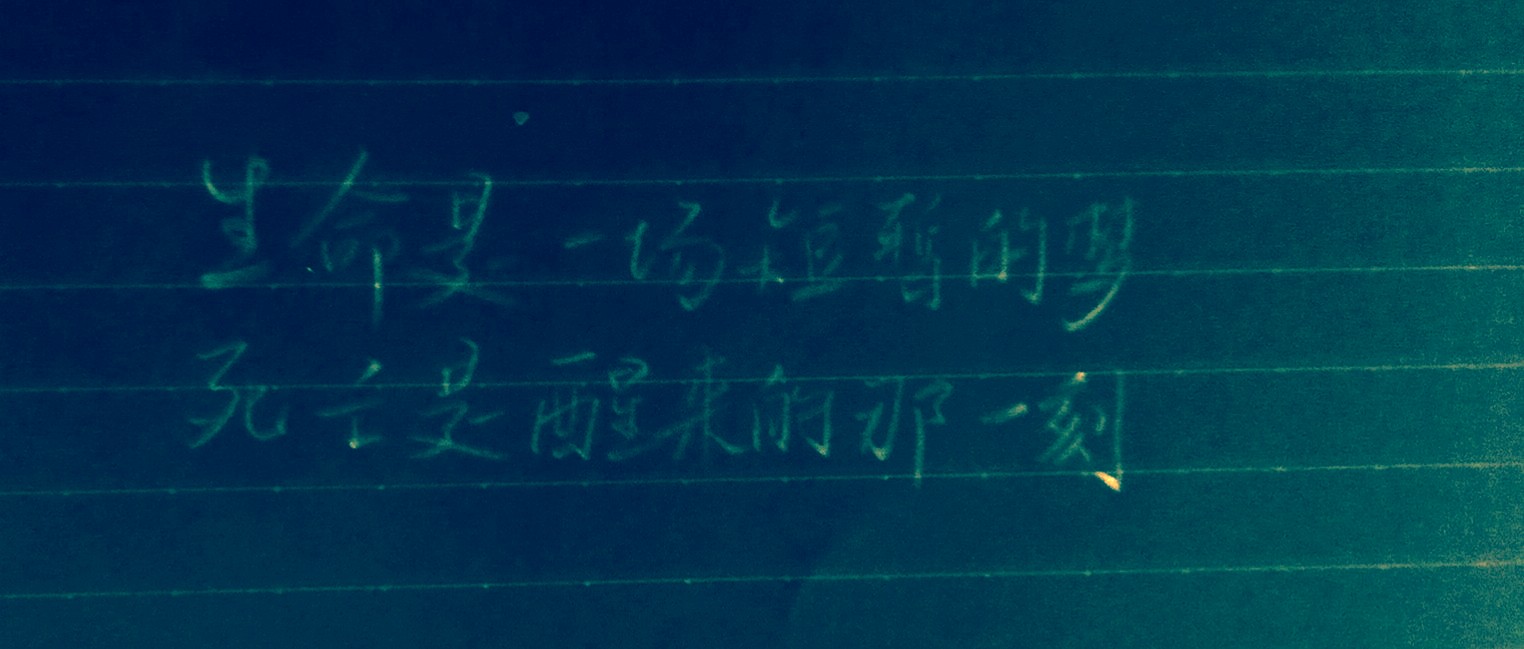 生命是一场短暂的梦
死亡是醒来的那一刻